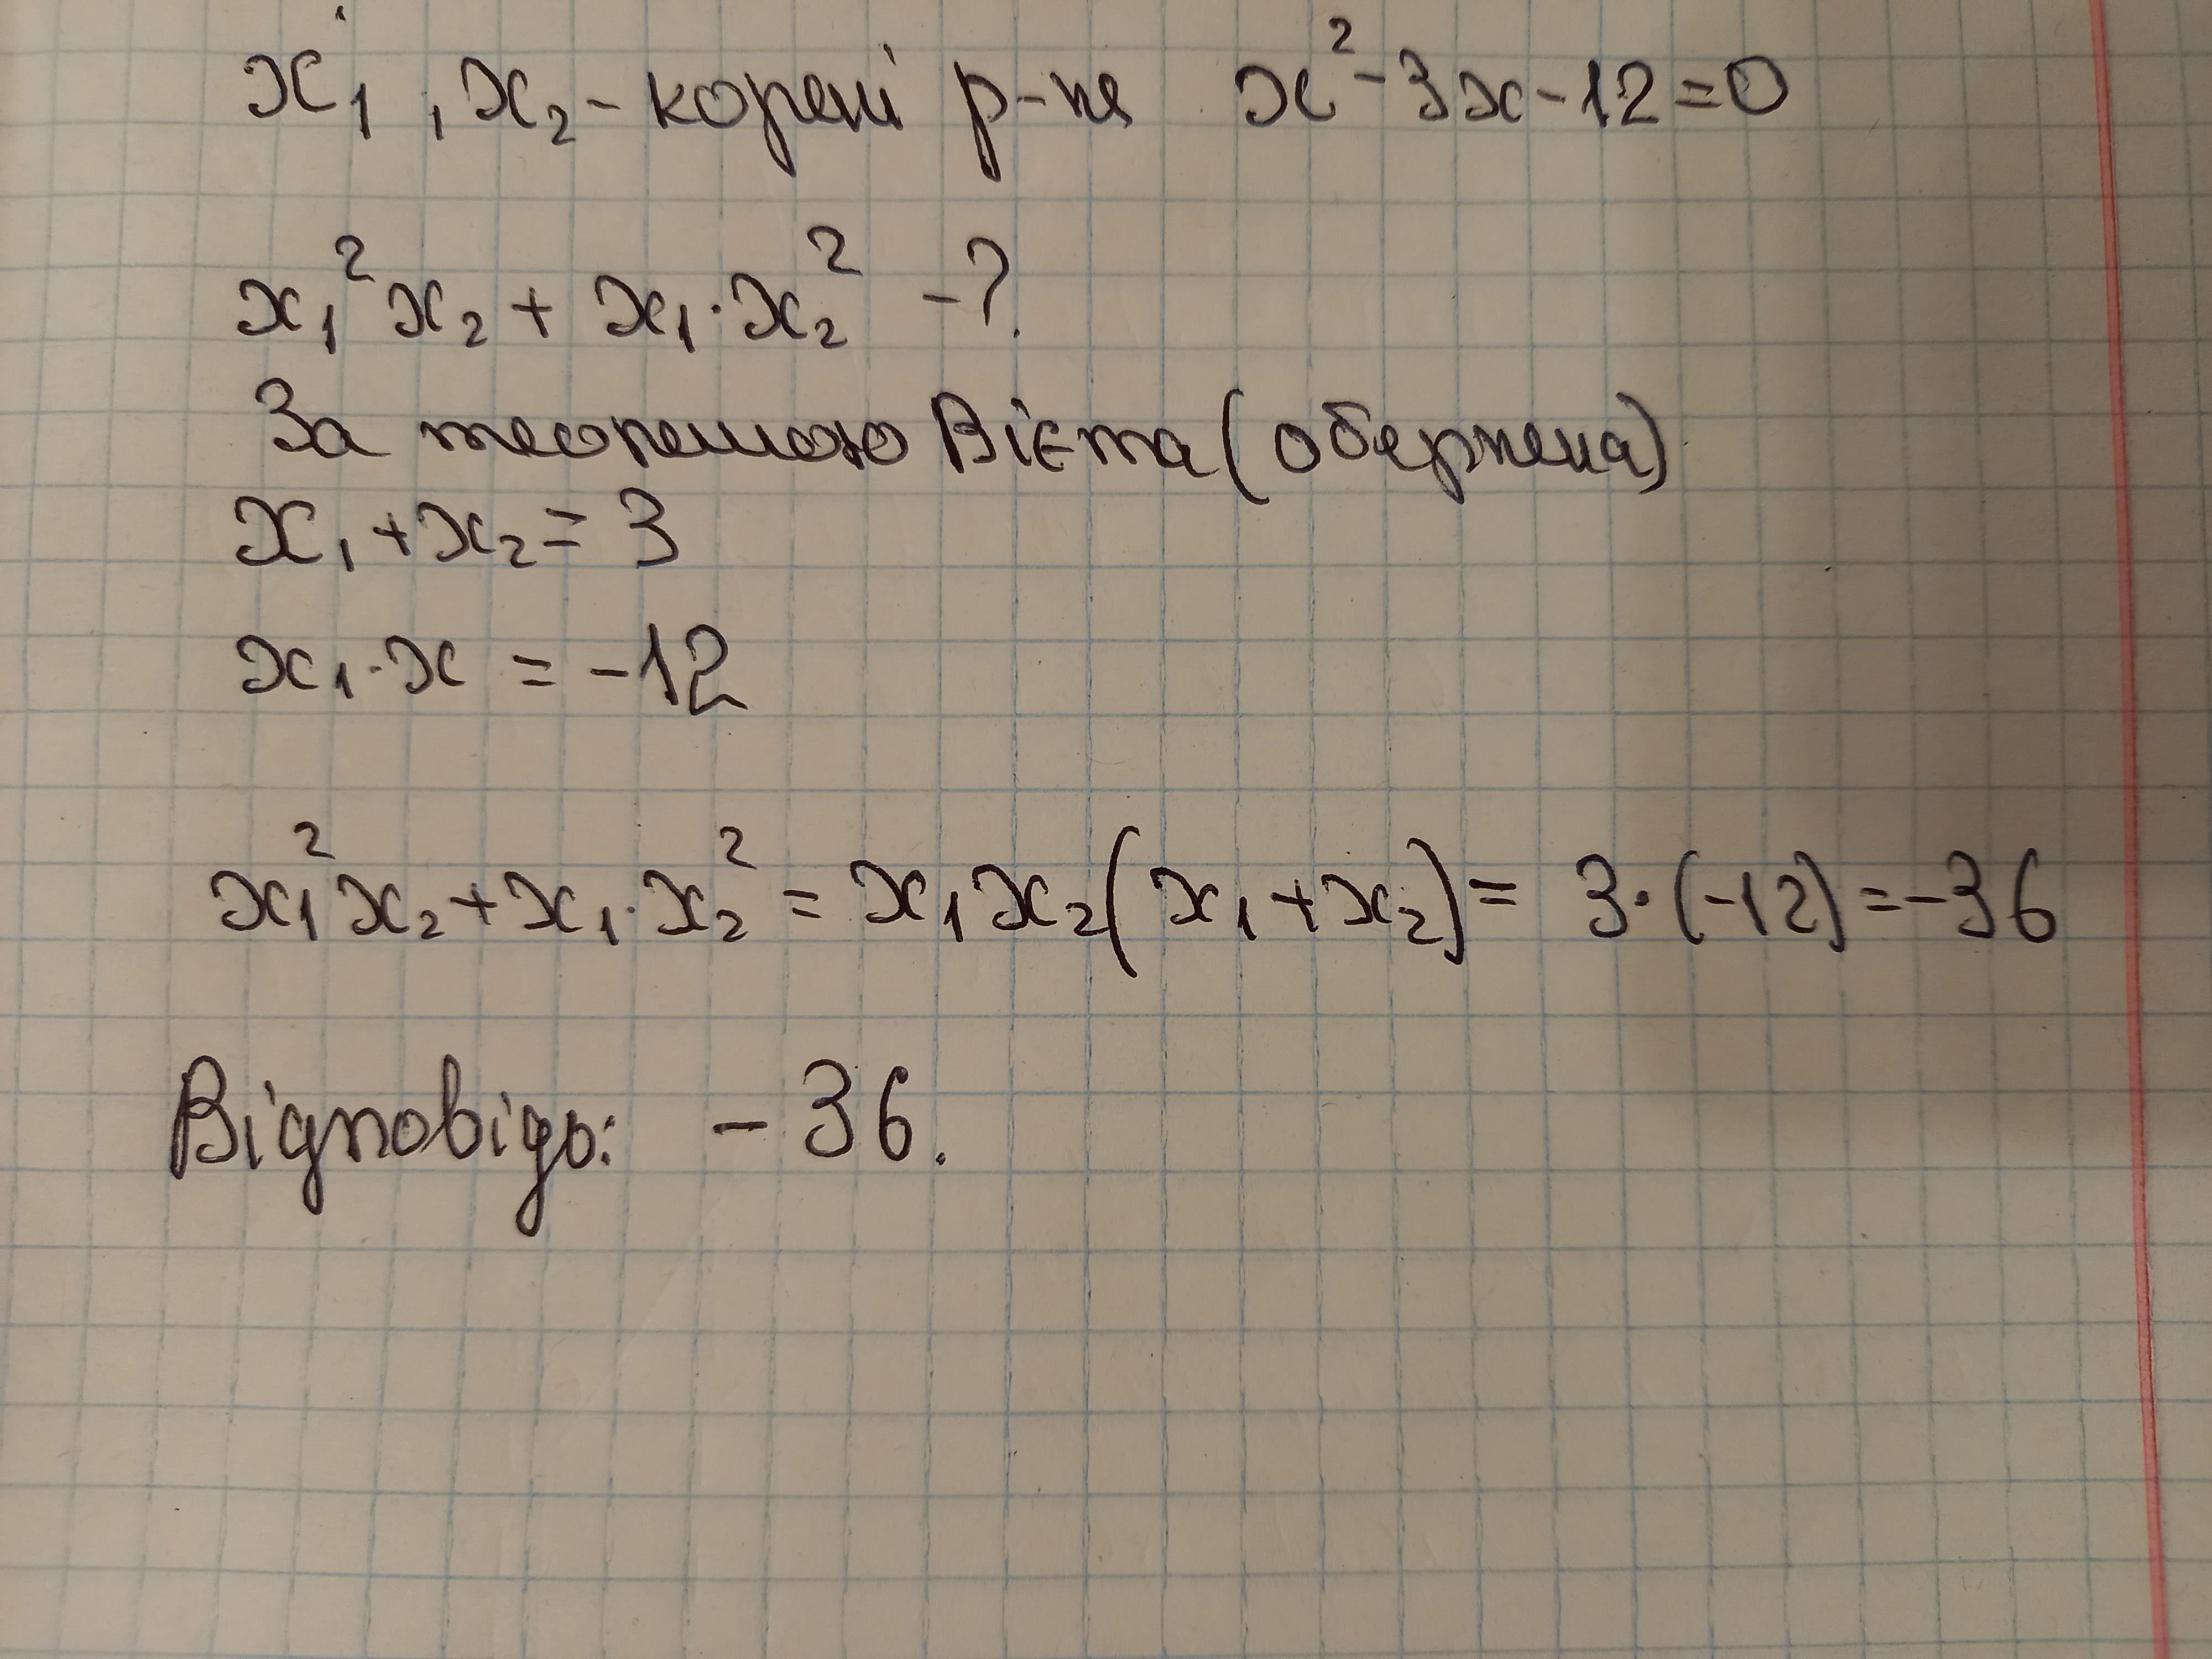 x₁, x₂ - корені р-ня x² - 3x - 12 = 0
x₁²x₂ + x₁·x₂² - ?
За теоремою Вієта (обернена)
x₁ + x₂ = 3
x₁·x = -12
x₁²x₂ + x₁·x₂² = x₁x₂(x₁ + x₂) = 3·(-12) = -36
Відповідь: -36.